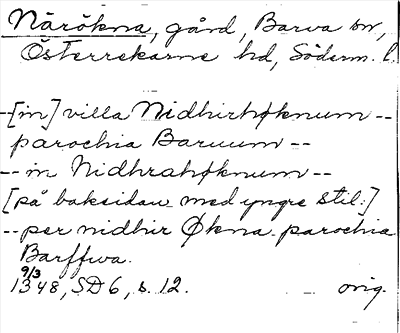 Närökna, gård, Barva sn,
Österrekarne hd, Söderm. l.
--[in] villa Nidhirhøknum --
parochia Baruum --
-- in Nidhrahøknum --
[på baksidan med yngre stil:]
-- per nidhir Økna parochia
Barffwa.
9/3
1348, SD 6, s. 12. orig.